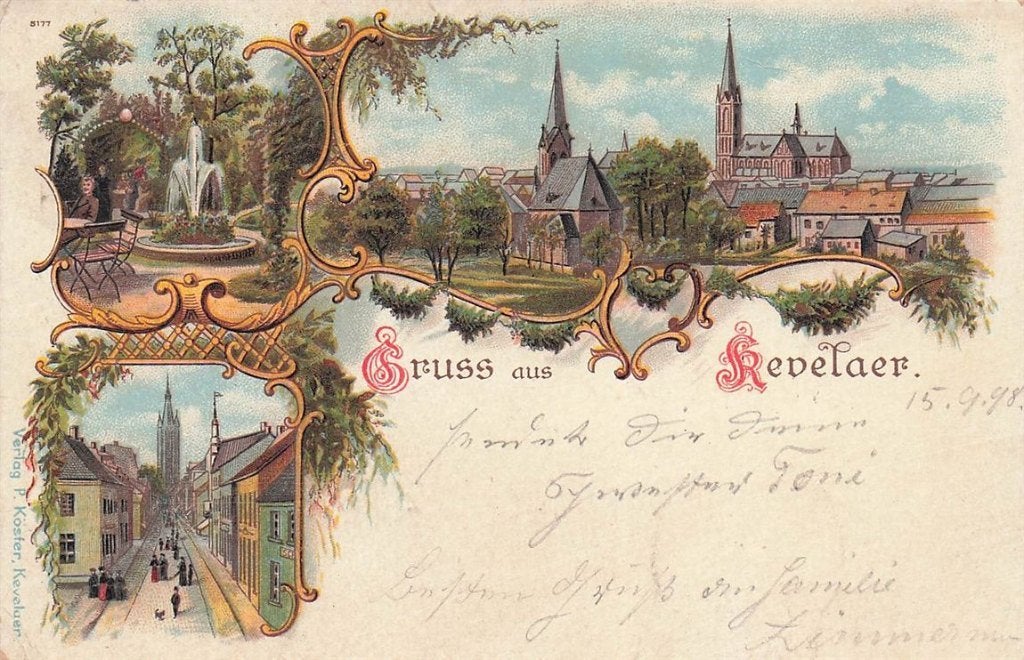 5177
Gruss aus Kevelaer.
15.9.98.
sendet Dir Deine
Schwester Toni
Besten Gruß an Familie
Zimmerm
Verlag P. Köster, Kevelaer.